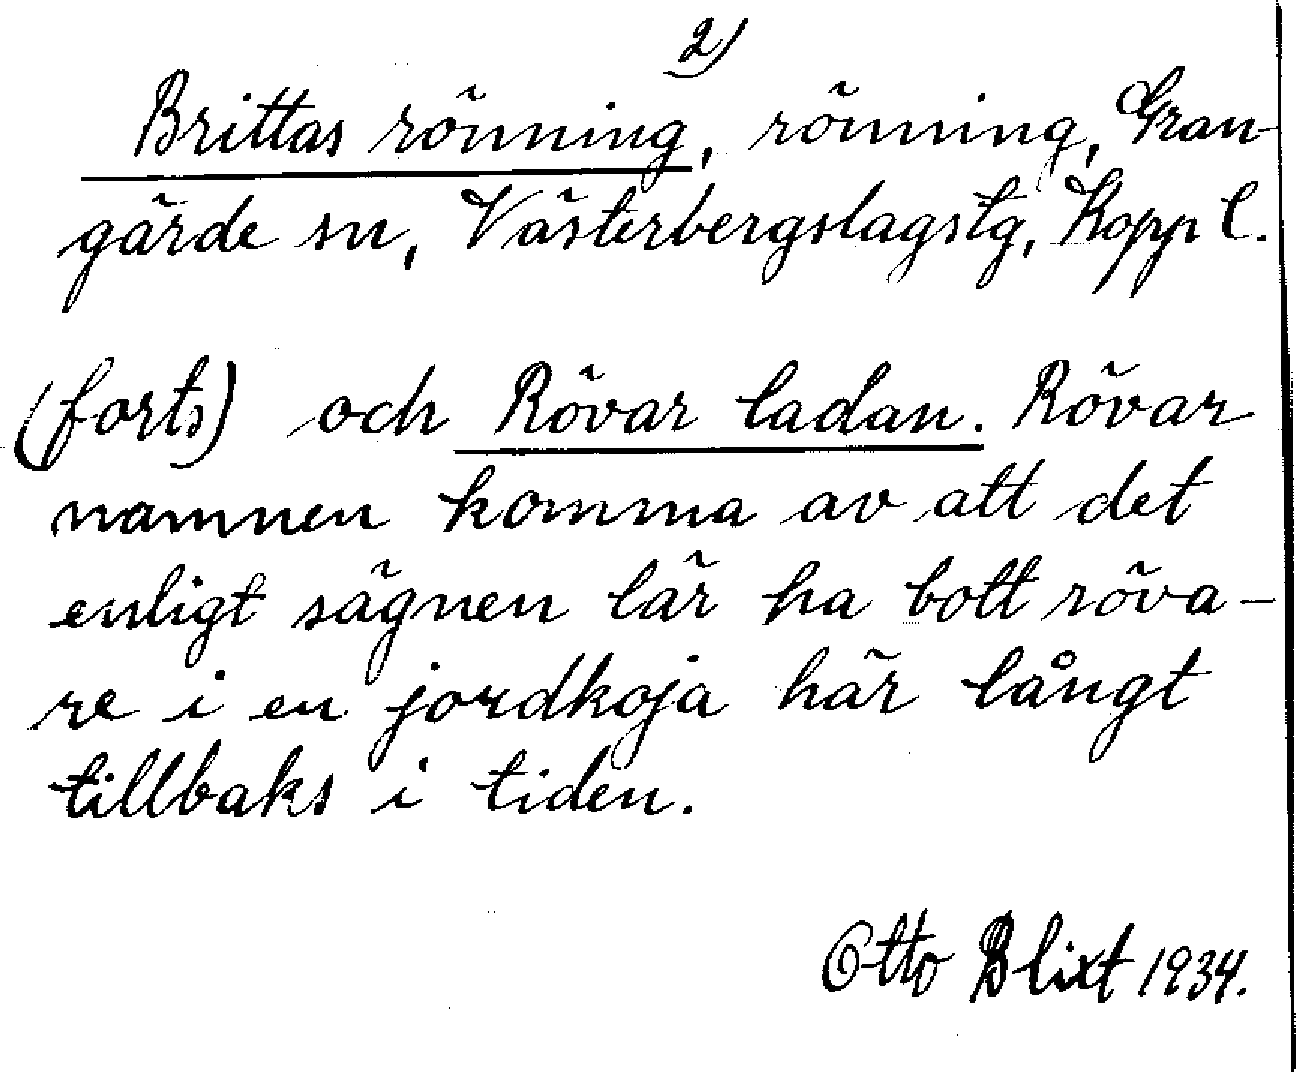 2)
Brittas rönning, rönning, Gran-
gärde sn, Västerbergslagstg, Kopp l.
(forts) och Rövar ladan. Rövar
namnen komma av att det
enligt sägnen lär ha bott röva-
re i en jordkoja här långt
tillbaks i tiden.
Otto Blixt 1934.